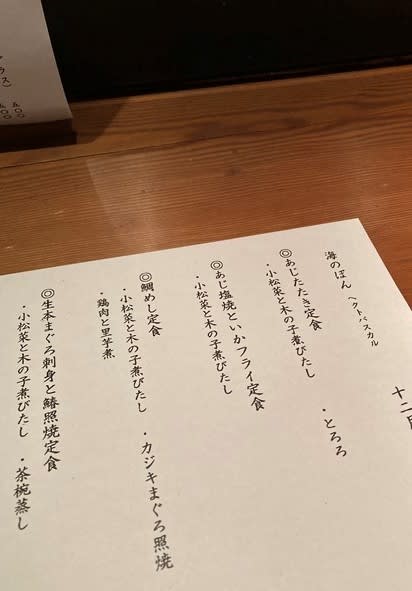 十二月
海のぼん ヘクトパスカル
◎あじたたき定食
・小松菜と木の子煮びたし ・とろろ
◎あじ塩焼といかフライ定食
・小松菜と木の子煮びたし
◎鯛めし定食
・小松菜と木の子煮びたし ・カジキまぐろ照焼
・鶏肉と里芋煮
◎生本まぐろ刺身と鰆照焼定食
・小松菜と木の子煮びたし ・茶椀蒸し
ラス）
五〇〇
五〇〇